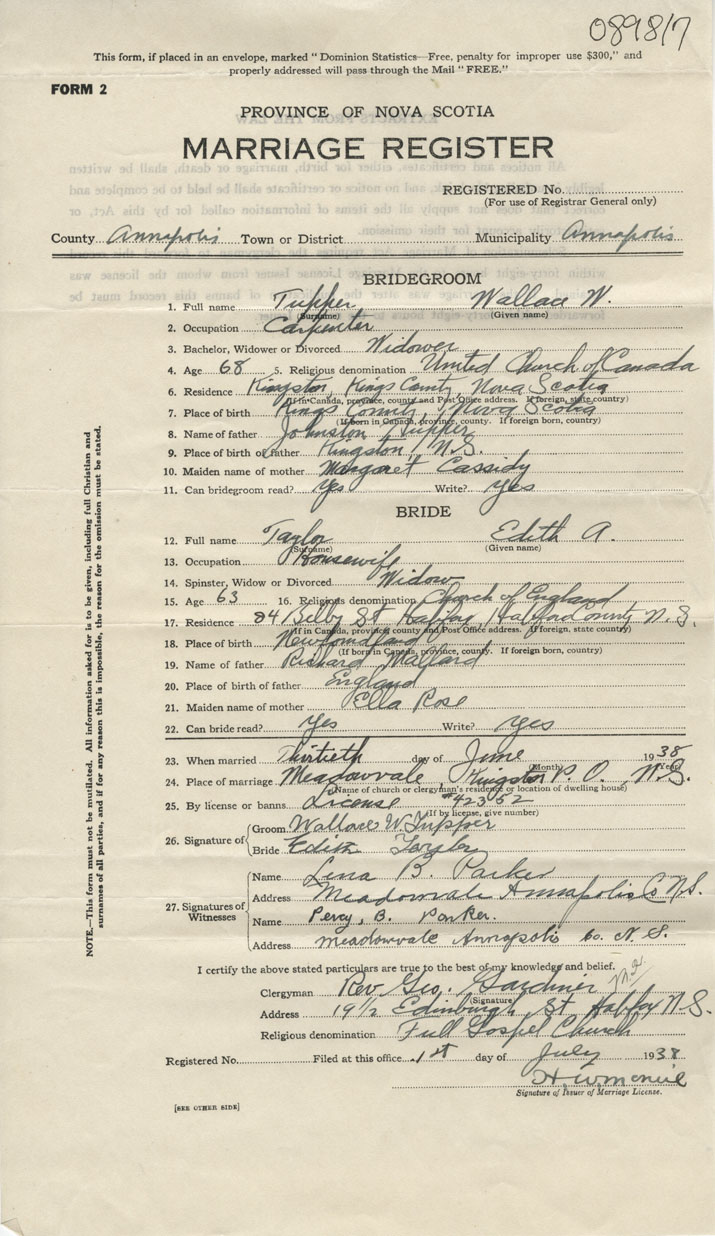 089817
This form, if placed in an envelope, marked "Dominion Statistics—Free, penalty for improper use $300," and
properly addressed will pass through the Mail "FREE."
FORM 2
PROVINCE OF NOVA SCOTIA
MARRIAGE REGISTER
REGISTERED No.
(For use of Registrar General only)
County Annapolis Town or District Municipality Annapolis
BRIDEGROOM
1. Full name Tupper Wallace W.
(Surname) (Given name)
2. Occupation Carpenter
3. Bachelor, Widower or Divorced Widower
4. Age 68 5. Religious denomination United Church of Canada
6. Residence Kingston, Kings County, Nova Scotia
(If in Canada, province, county and Post Office address. If foreign, state country)
7. Place of birth Kings County, Nova Scotia
(If born in Canada, province, county. If foreign born, country)
8. Name of father Johnston Tupper
9. Place of birth of father Kingston, N.S.
10. Maiden name of mother Margaret Cassidy
11. Can bridegroom read? Yes Write? Yes
BRIDE
12. Full name Taylor Edith A.
(Surname) (Given name)
13. Occupation Housewife
14. Spinster, Widow or Divorced Widow
15. Age 63 16. Religious denomination Church of England
17. Residence 84 Bilby St Halifax, Halifax County N.S.
(If in Canada, province, county and Post Office address. If foreign, state country)
18. Place of birth Newfoundland
(If born in Canada, province, county. If foreign born, country)
19. Name of father Richard Mallard
20. Place of birth of father England
21. Maiden name of mother Ella Rose
22. Can bride read? Yes Write? Yes
23. When married Thirtieth day of June 1938
(Month) (Year)
24. Place of marriage Meadowvale, Kingston P.O., N.S.
(Name of church or clergyman's residence or location of dwelling house)
25. By license or banns License #42352
(If by license, give number)
26. Signature of Groom Wallace W. Tupper
Bride Edith Taylor
27. Signatures of Witnesses
Name Lena B. Parker
Address Meadowvale Annapolis Co N.S.
Name Percy, B. Parker.
Address Meadowvale Annapolis Co. N.S.
I certify the above stated particulars are true to the best of my knowledge and belief.
Clergyman Rev. Geo. Gardner
(Signature)
Address 19½ Edinburgh St, Halifax N.S.
Religious denomination Full Gospel Church
Registered No. Filed at this office 1st day of July 1938
Signature of Issuer of Marriage License.
[SEE OTHER SIDE]
NOTE.—This form must not be mutilated. All information asked for is to be given, including full Christian and
surnames of all parties, and if for any reason this is impossible, the reason for the omission must be stated.